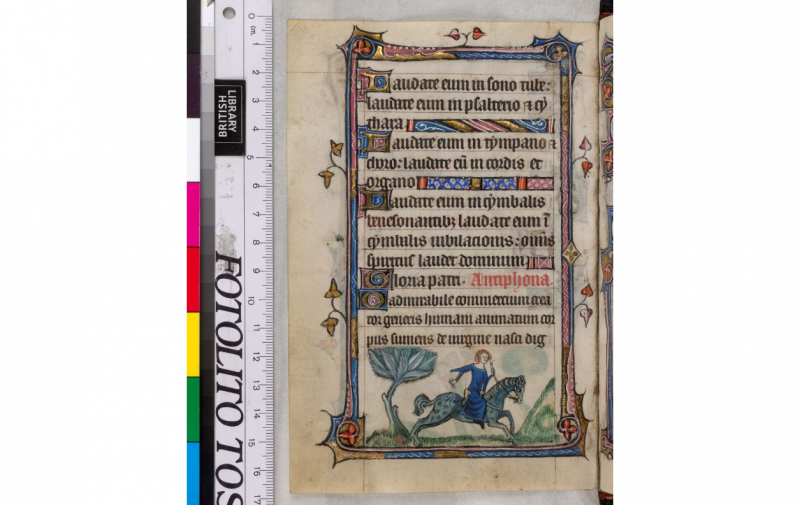 Laudate eum in sono tube:
laudate eum in psalterio ⁊ cy
thara
Laudate eum in tympano ⁊
choro: laudate eū in cordis et
organo
Laudate eum in cymbalis
benesonantibꝫ laudate eum ī
cymbalis iubilacionis: omīs
spiritus laudet dominum
Gloria patri. Antiphona.
O admirabile commercium crea
tor generis humani animatum cor
pus sumens de uirgine nasci dig
BRITISH
LIBRARY
0 cm. 1 2 3 4 5 6 7 8 9 10 11 12 13 14 15 16 17
FOTOLITO TOS